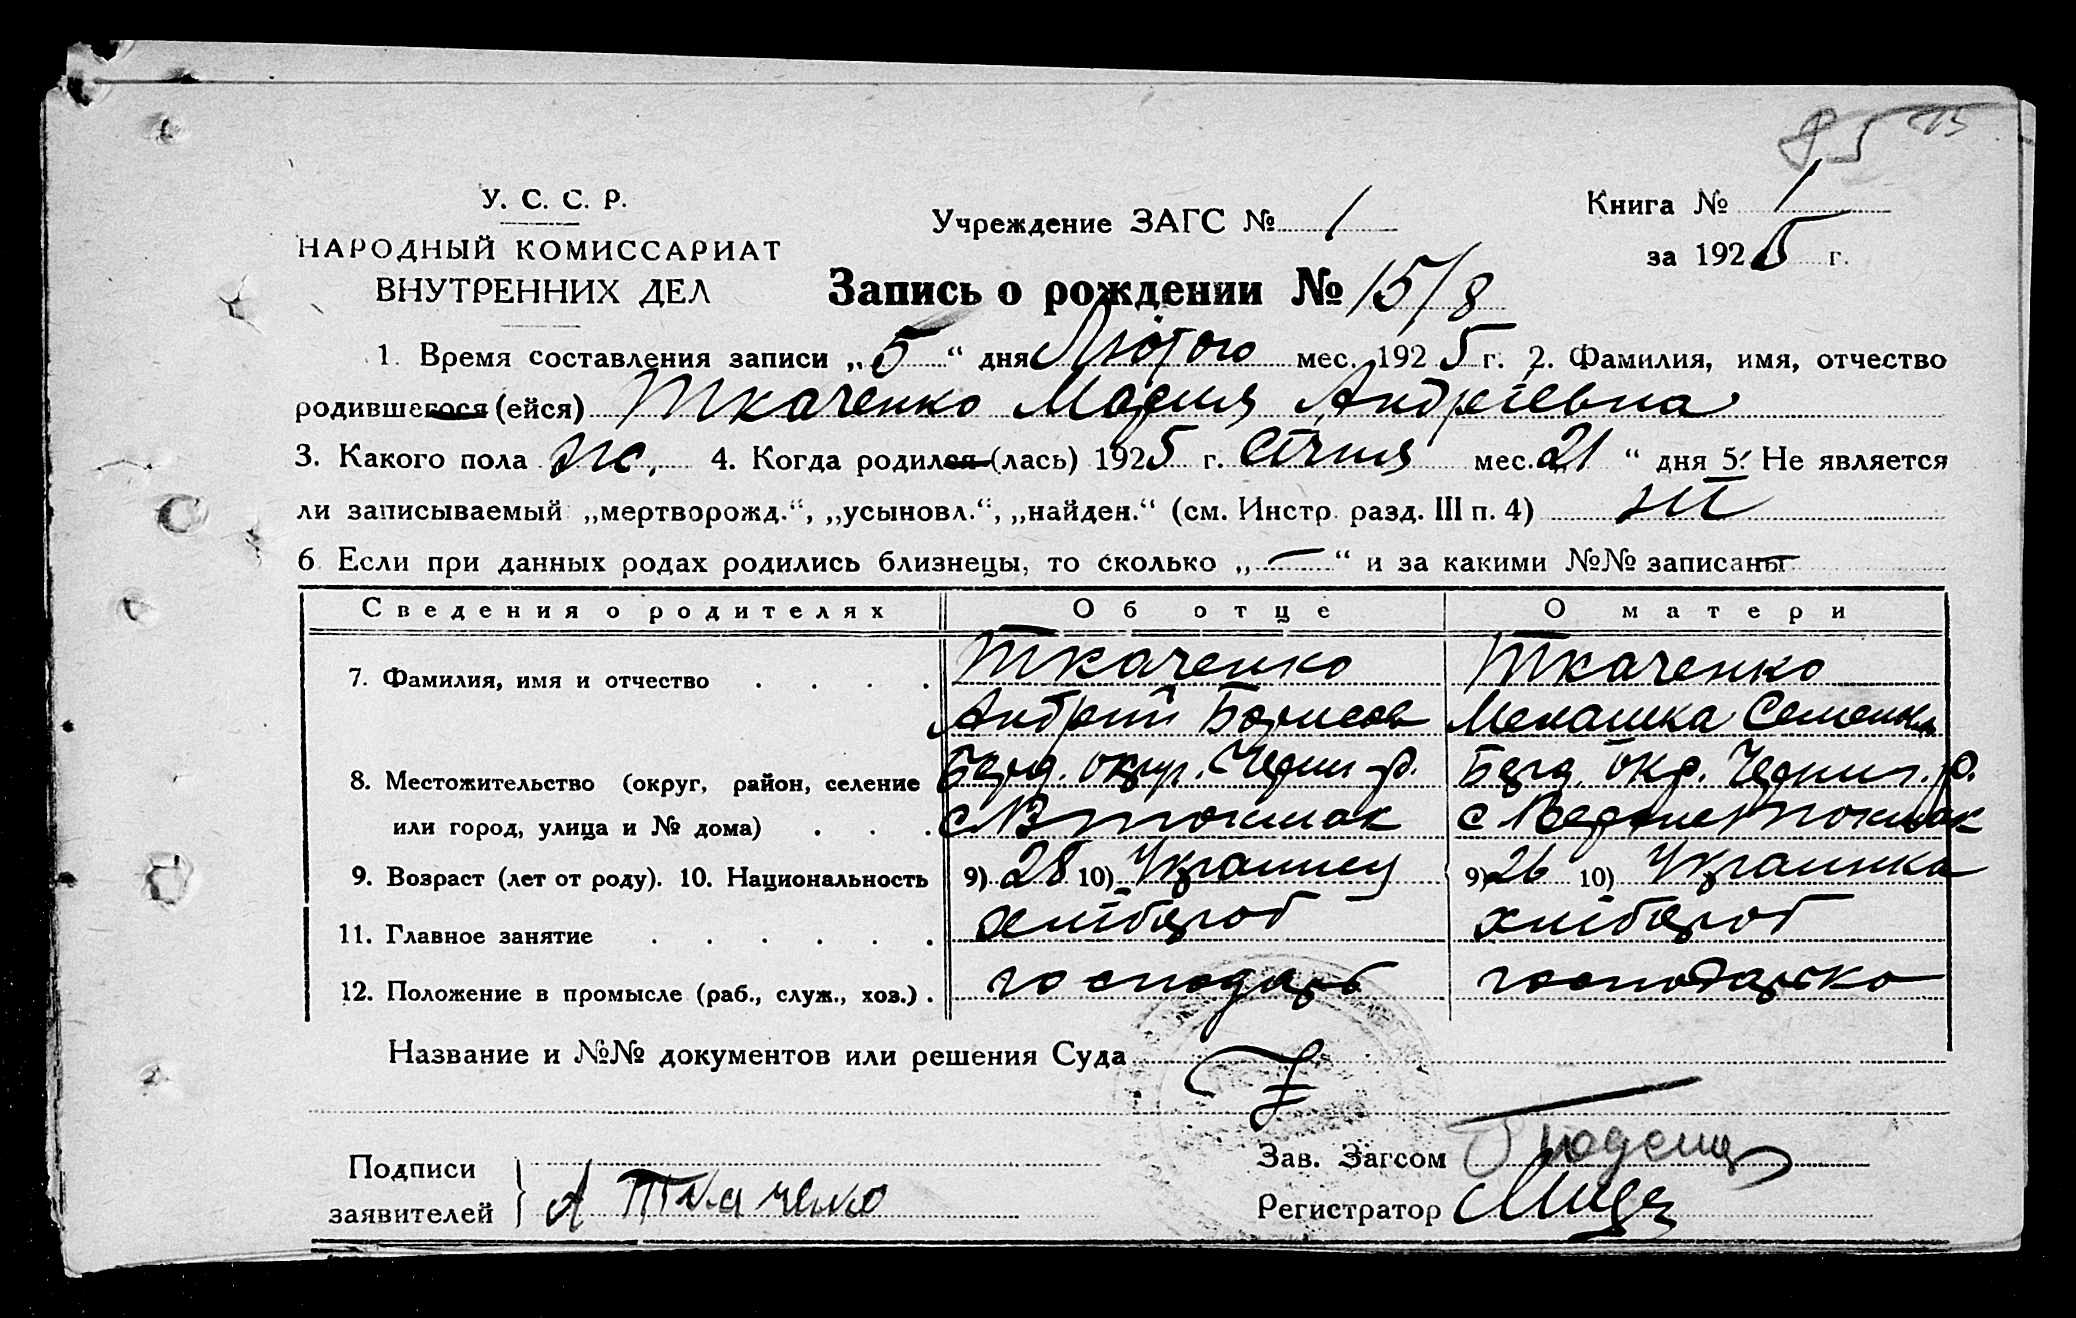 85 15
У. С. С. Р.
НАРОДНЫЙ КОМИССАРИАТ
ВНУТРЕННИХ ДЕЛ
Учреждение ЗАГС № 1
Книга № 1
за 1925 г.
Запись о рождении № 15/8
1. Время составления записи „5“ дня Лютого мес. 1925 г. 2. Фамилия, имя, отчество
родившегося (ейся) Ткаченко Мария Андріевна
3. Какого пола ж. 4. Когда родился (лась) 1925 г. Січня мес. 21 “ дня 5. Не является
ли записываемый „мертворожд.“, „усыновл.“, „найден.“ (см. Инстр. разд. III п. 4) ні
6. Если при данных родах родились близнецы, то сколько „—“ и за какими №№ записаны —
Сведения о родителях Об отце О матери
7. Фамилия, имя и отчество . . . . Ткаченко Ткаченко
Андрій Борисов Мелашка Семенівна
8. Местожительство (округ, район, селение Берд. округ. Черниг. р. Берд. Окр. Черниг. р.
или город, улица и № дома) . . . с В Токмак с Верхне Токмак
9. Возраст (лет от роду). 10. Национальность 9) 28 10) Украинец 9) 26 10) Украинка
11. Главное занятие . . . . . . хлібороб хлібороб
12. Положение в промысле (раб., служ., хоз.) . господарь господарько
Название и №№ документов или решения Суда
Подписи
заявителей } А Ткаченко
Зав. Загсом
Регистратор